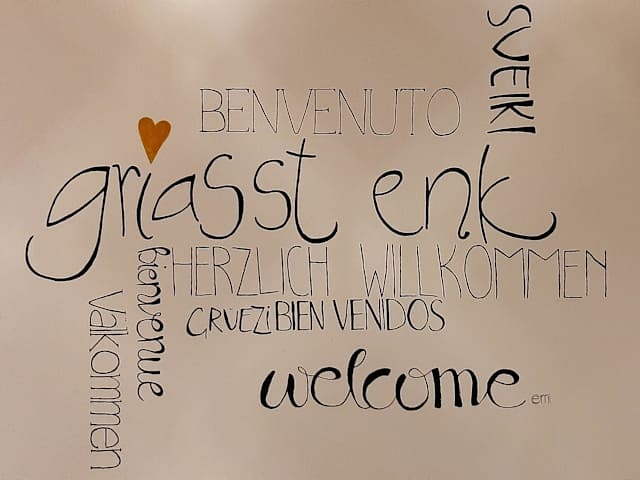 SVEIKI
BENVENUTO
griasst enk
HERZLICH WILLKOMMEN
bienvenue
GRUEZI BIEN VENIDOS
Välkommen
welcome
em